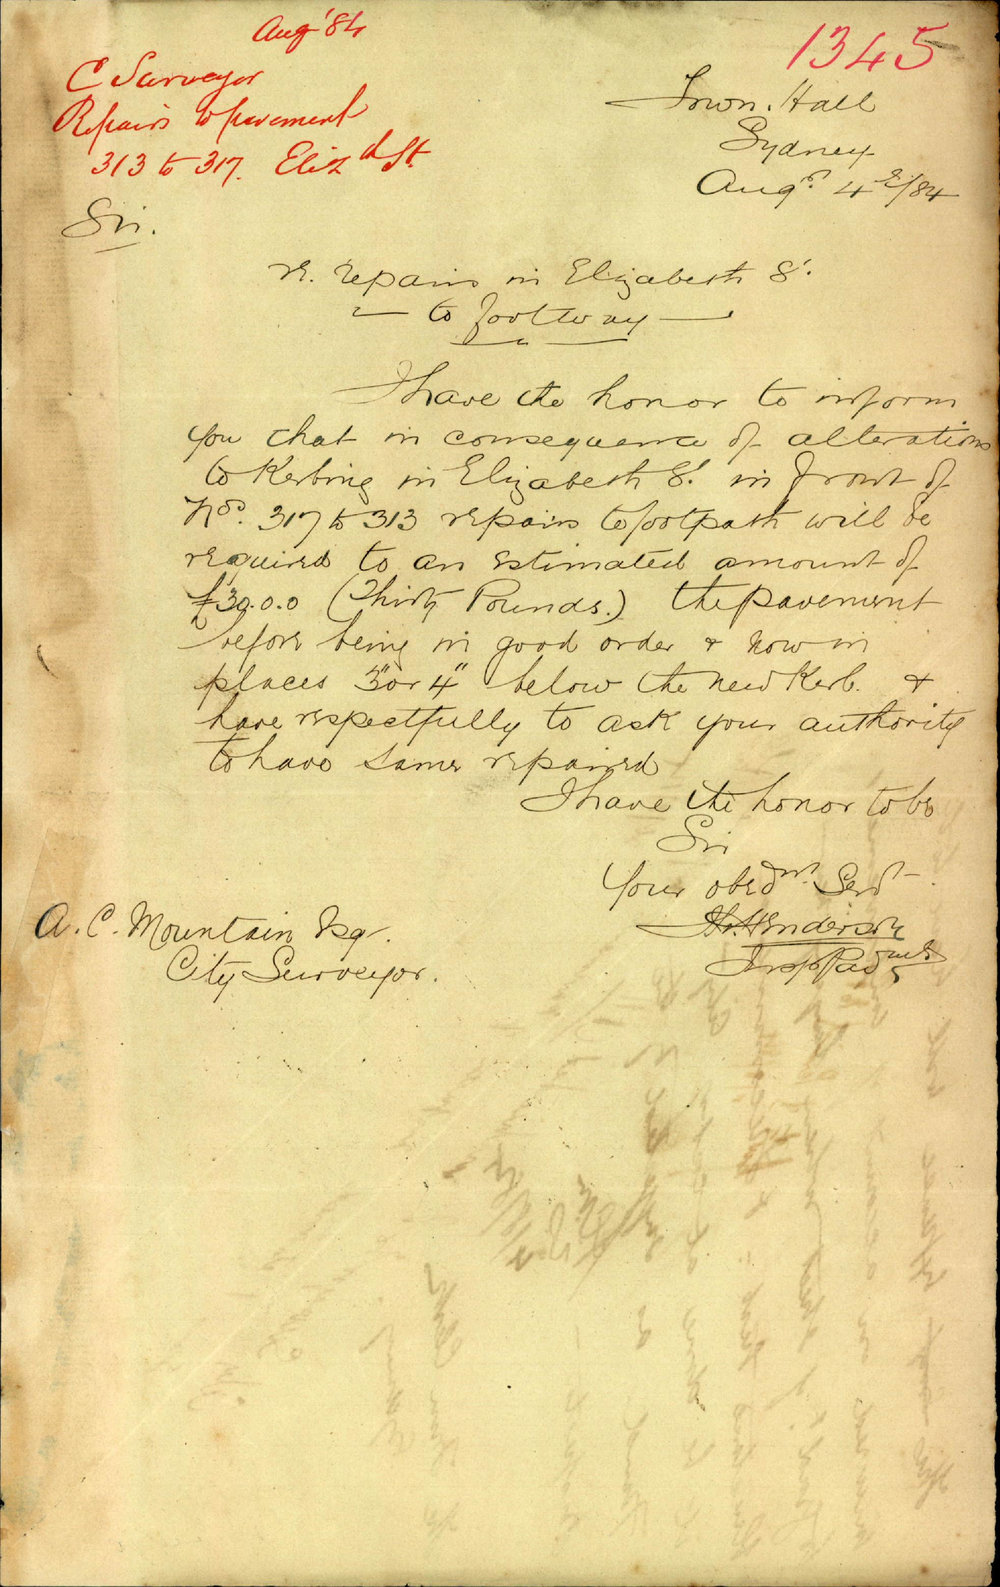 Aug '84
C Surveyor
Repairs to pavement
313 to 317. Elizth St.
1345
Town Hall
Sydney
Augt 4th/84
Sir.
re. repairs in Elizabeth St.
to footway
I have the honor to inform
you that in consequence of alterations
to Kerbing in Elizabeth St. in front of
Nos. 317 to 313 repairs to footpath will be
required to an estimated amount of
£30.0.0 (Thirty Pounds.) the pavement
before being in good order & now in
places 3" or 4" below the new Kerb. &
have respectfully to ask your authority
to have same repaired
I have the honor to be
Sir
Your obednt Servt
Henderson
A. C. Mountain Esq.
City Surveyor.